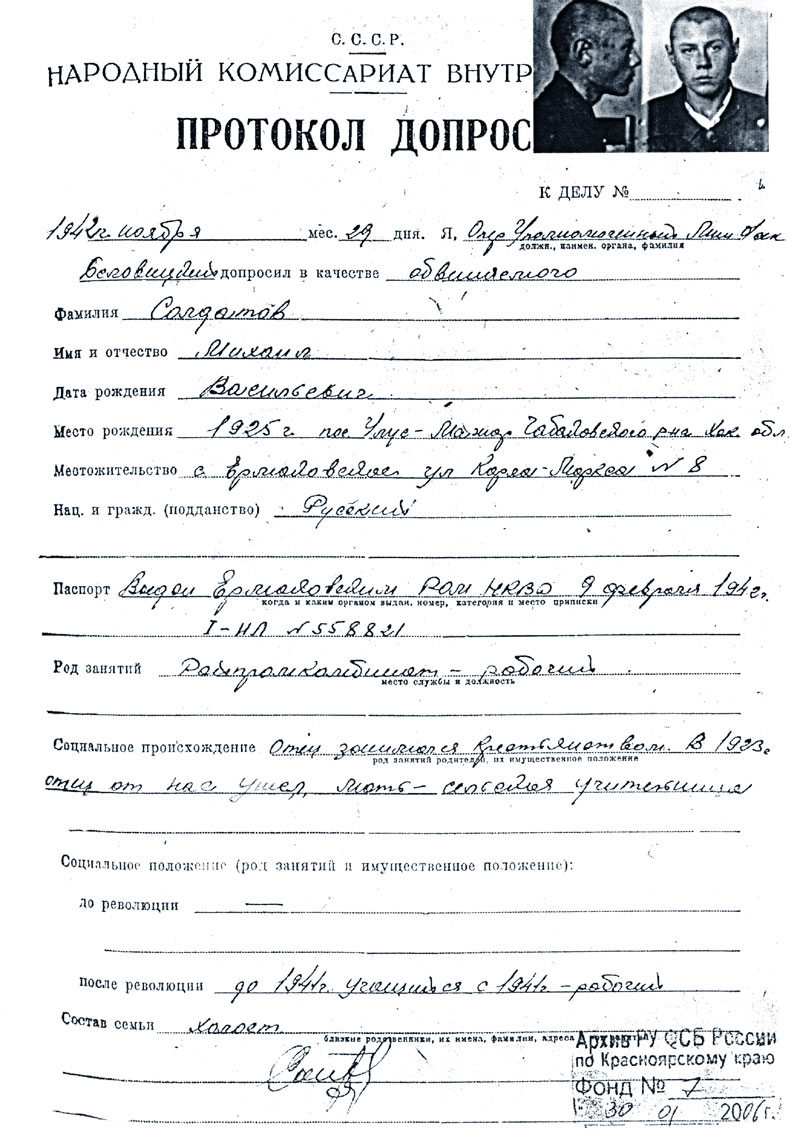 С.С.С.Р.
НАРОДНЫЙ КОМИССАРИАТ ВНУТР
ПРОТОКОЛ ДОПРОС
К ДЕЛУ №
1942г. ноября мес. 29 дня. Я, Опер Уполномоченный
должн., наимен. органа, фамилия
допросил в качестве обвиняемого
Фамилия Солдатов
Имя и отчество Михаил
Дата рождения Васильевич
Место рождения 1925 г. пос Улус- р-на Хак. обл.
Местожительство с Ермаковское ул Карла-Маркса N 8
Нац. и гражд. (подданство) Русский
Паспорт Выдан Ермаковским РОМ НКВД 9 февраля 1942г.
когда и каким органом выдан, номер, категория и место приписки
I-НЛ N 558821
Род занятий Райпромкомбинат - рабочий
место службы и должность
Социальное происхождение Отец занимался крестьянством. В 1923г
род занятий родителей, их имущественное положение
отец от нас ушел, мать - сельская учительница
Социальное положение (род занятий и имущественное положение):
до революции —
после революции до 1941г. учащийся с 1941г. - рабочий
Состав семьи холост
близкие родственники, их имена, фамилии, адреса
Архив РУ ФСБ России
по Красноярскому краю
Фонд № 7
30 01 2006 г.